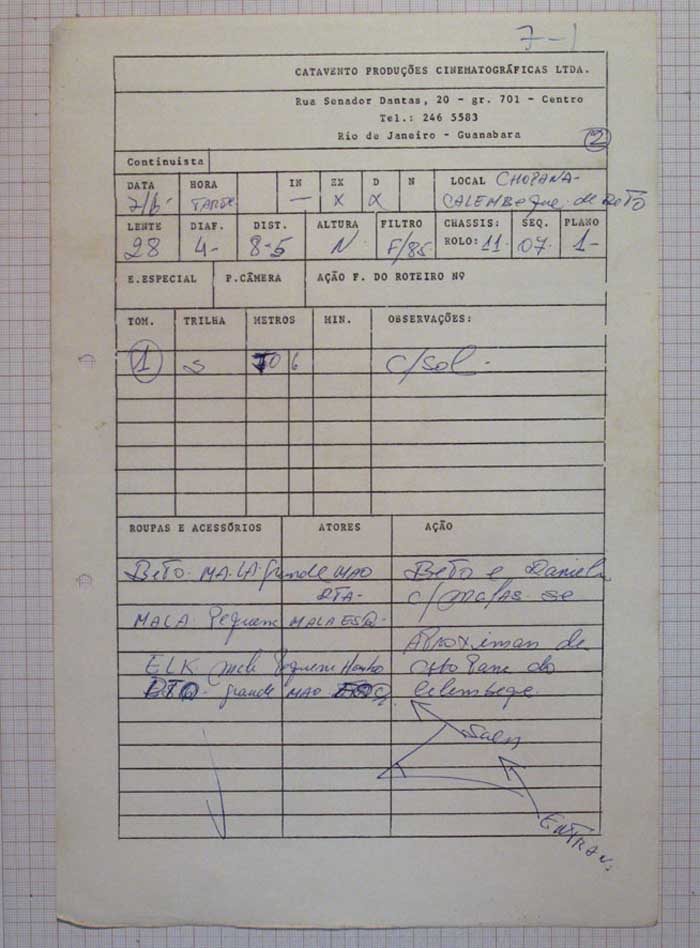 7-1
CATAVENTO PRODUÇÕES CINEMATOGRÁFICAS LTDA.
Rua Senador Dantas, 20 - gr. 701 - Centro
Tel.: 246 5583
Rio de Janeiro - Guanabara
2
Continuista
DATA HORA IN EX D N LOCAL CHOPANA-
7/6 TARDE — X X CALEMBEQUE de BETO
LENTE DIAF. DIST. ALTURA FILTRO CHASSIS: SEQ. PLANO
28 4- 8-5 N. F/85 ROLO: 11 07. 1-
E.ESPECIAL P.CÂMERA AÇÃO F. DO ROTEIRO Nº
TOM. TRILHA METROS MIN. OBSERVAÇÕES:
1 S 6 c/sol-
ROUPAS E ACESSÓRIOS ATORES AÇÃO
BETO. MALA grande MAO BETO e Daniela
DTA- c/malas se
MALA Pequena MALA ESQ.
APROXIMAN de
ELK Pequena
grande MAO
Saem
ENTRAN.